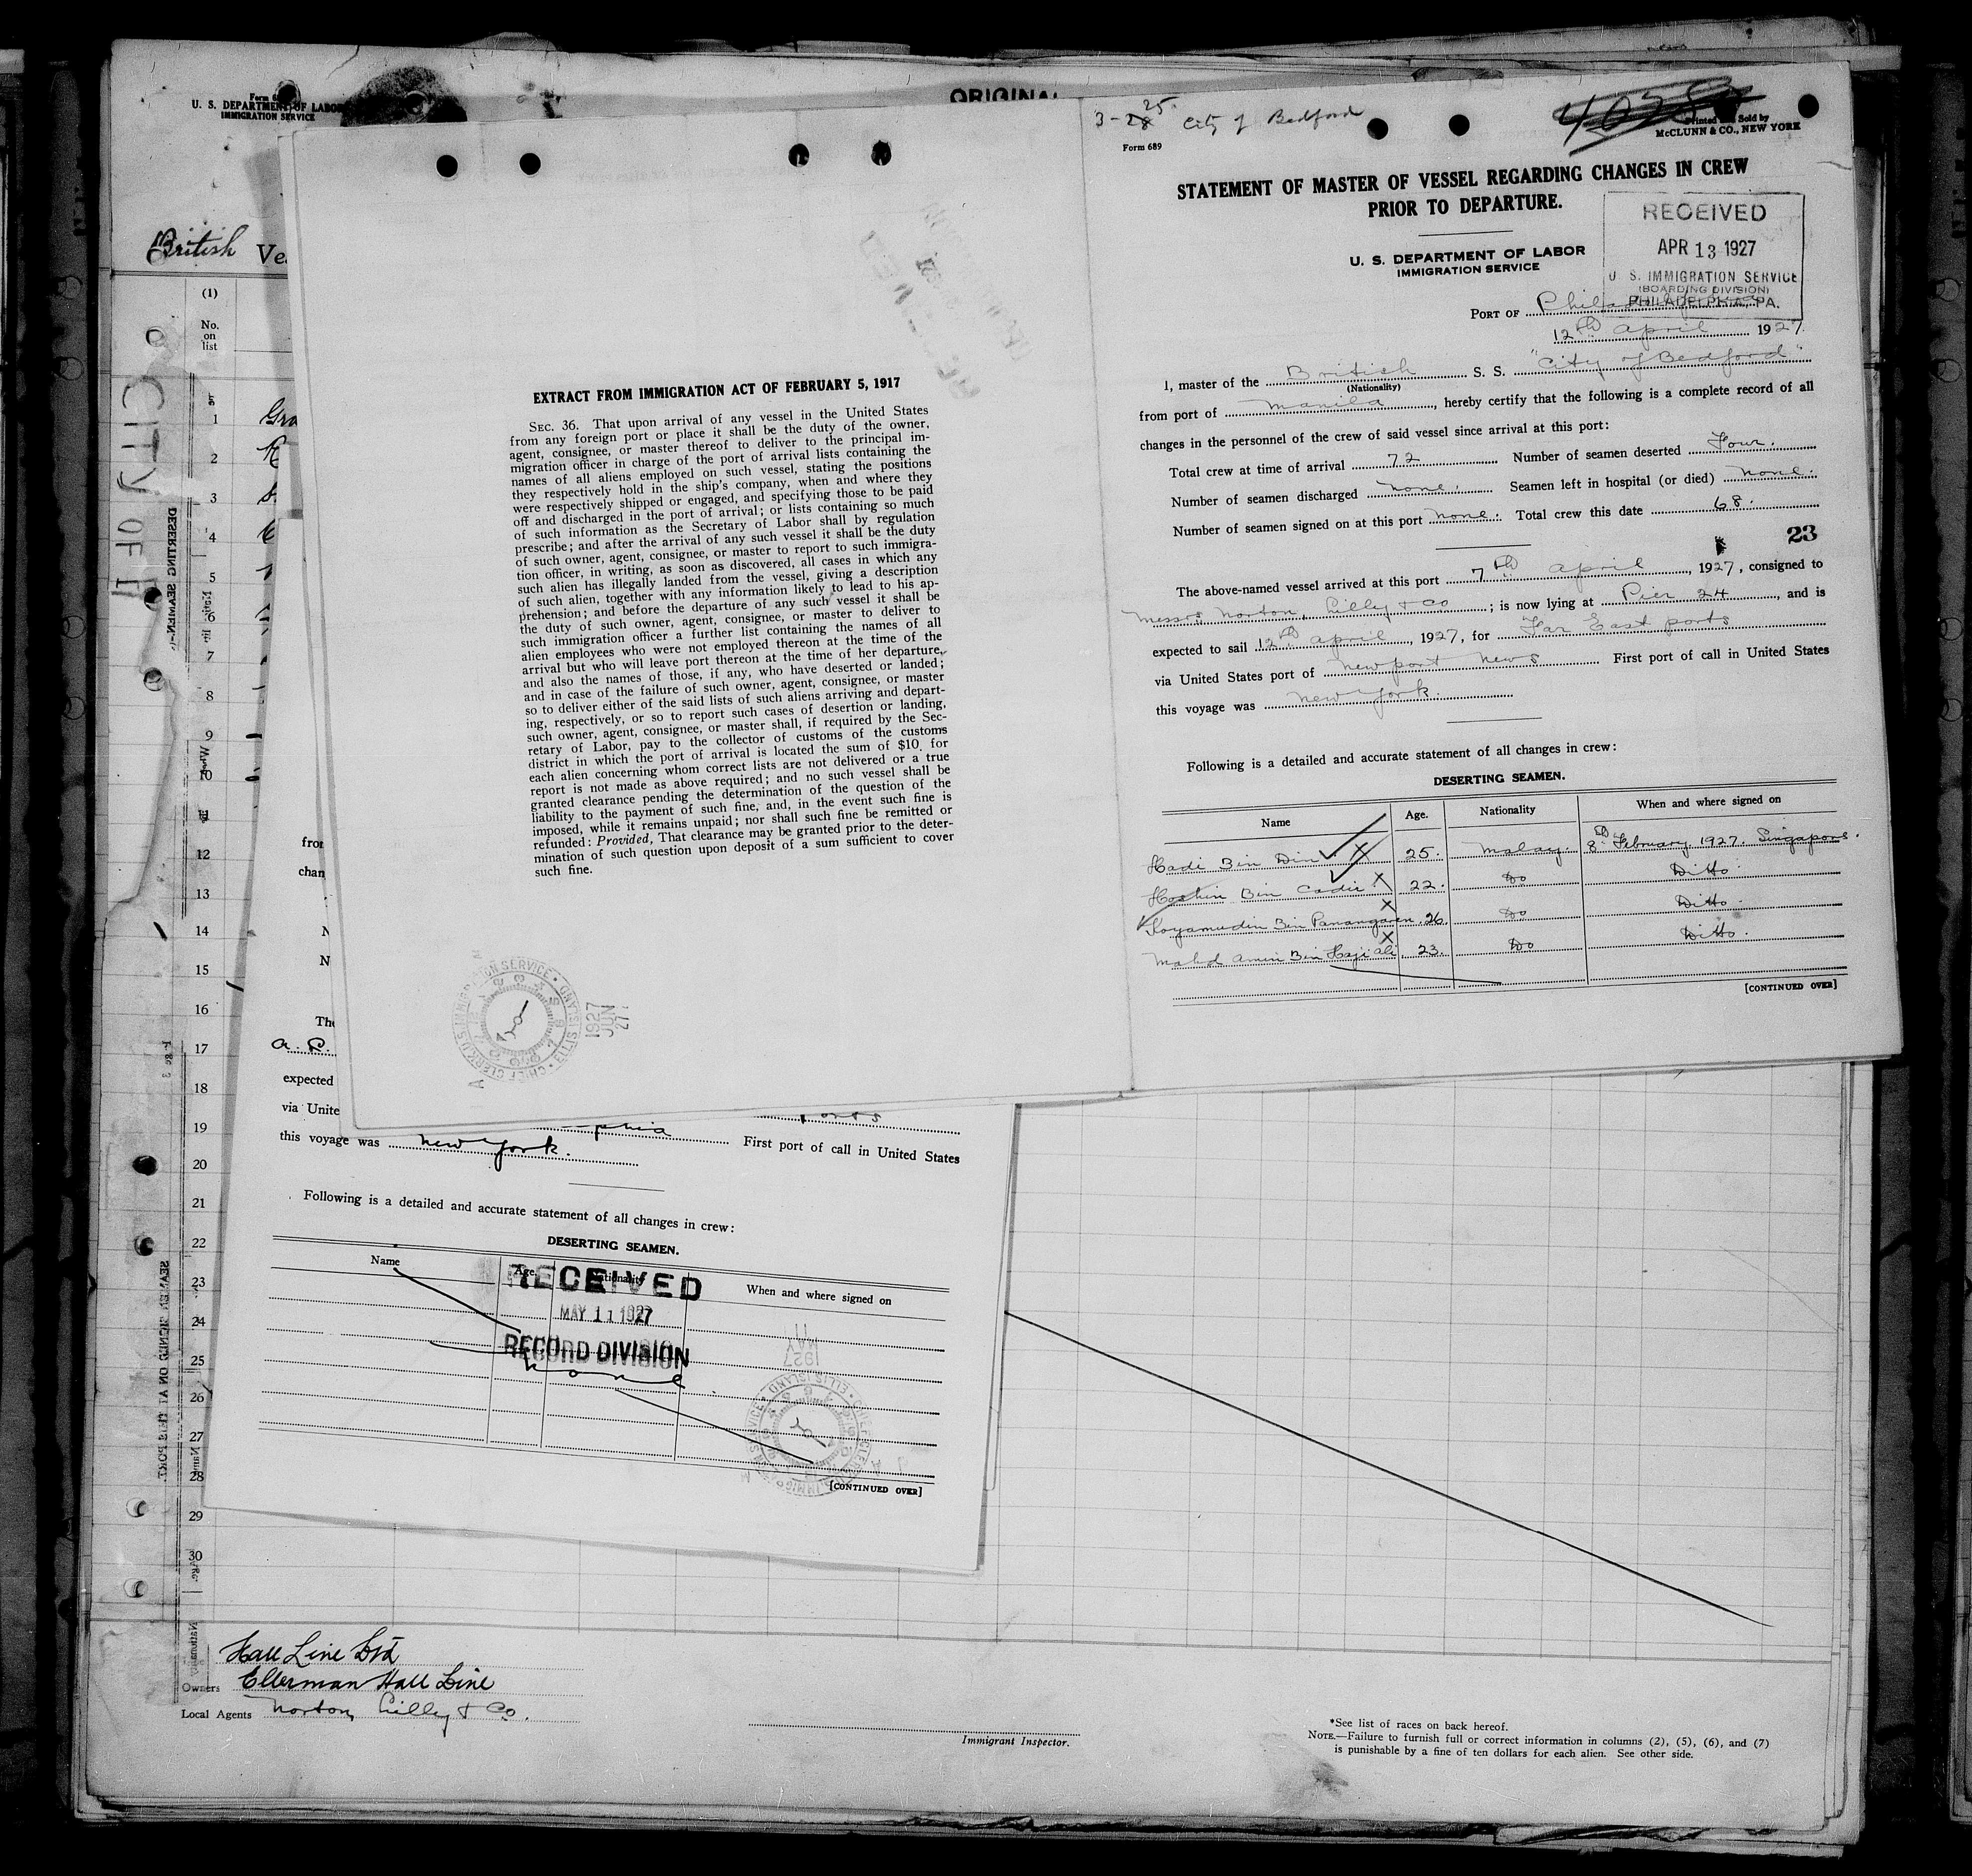 Form 6
U. S. DEPARTMENT OF LABOR
IMMIGRATION SERVICE
ORIGINAL
British Ve
(1)
No.
on
list
1 Gra
2
3
4
5
6
7
8
9
10
11
12
13
14
15
16
17
18
19
20
21
22
23
24
25
26
27
28
29
30
CITY OF
DESERTING SEAMEN
EXTRACT FROM IMMIGRATION ACT OF FEBRUARY 5, 1917
SEC. 36. That upon arrival of any vessel in the United States
from any foreign port or place it shall be the duty of the owner,
agent, consignee, or master thereof to deliver to the principal im-
migration officer in charge of the port of arrival lists containing the
names of all aliens employed on such vessel, stating the positions
they respectively hold in the ship's company, when and where they
were respectively shipped or engaged, and specifying those to be paid
off and discharged in the port of arrival; or lists containing so much
of such information as the Secretary of Labor shall by regulation
prescribe; and after the arrival of any such vessel it shall be the duty
of such owner, agent, consignee, or master to report to such immigra-
tion officer, in writing, as soon as discovered, all cases in which any
such alien has illegally landed from the vessel, giving a description
of such alien, together with any information likely to lead to his ap-
prehension; and before the departure of any such vessel it shall be
the duty of such owner, agent, consignee, or master to deliver to
such immigration officer a further list containing the names of all
alien employees who were not employed thereon at the time of the
arrival but who will leave port thereon at the time of her departure,
and also the names of those, if any, who have deserted or landed;
and in case of the failure of such owner, agent, consignee, or master
so to deliver either of the said lists of such aliens arriving and depart-
ing, respectively, or so to report such cases of desertion or landing,
such owner, agent, consignee, or master shall, if required by the Sec-
retary of Labor, pay to the collector of customs of the customs
district in which the port of arrival is located the sum of $10 for
each alien concerning whom correct lists are not delivered or a true
report is not made as above required; and no such vessel shall be
granted clearance pending the determination of the question of the
liability to the payment of such fine, and, in the event such fine is
imposed, while it remains unpaid; nor shall such fine be remitted or
refunded: Provided, That clearance may be granted prior to the deter-
mination of such question upon deposit of a sum sufficient to cover
such fine.
CHIEF CLERK U.S. IMMIGRATION SERVICE · ELLIS ISLAND
1927
JUN
27
3-25 City of Bedford
Form 689
Printed and Sold by
McCLUNN & CO., NEW YORK
STATEMENT OF MASTER OF VESSEL REGARDING CHANGES IN CREW
PRIOR TO DEPARTURE.
U. S. DEPARTMENT OF LABOR
IMMIGRATION SERVICE
RECEIVED
APR 13 1927
U. S. IMMIGRATION SERVICE
(BOARDING DIVISION)
PHILADELPHIA, PA.
PORT OF Philadelphia
12th April 1927
I, master of the British S. S. "City of Bedford"
(Nationality)
from port of Manila, hereby certify that the following is a complete record of all
changes in the personnel of the crew of said vessel since arrival at this port:
Total crew at time of arrival 72 Number of seamen deserted Four.
Number of seamen discharged none. Seamen left in hospital (or died) none.
Number of seamen signed on at this port none. Total crew this date 68.
23
The above-named vessel arrived at this port 7th April, 1927, consigned to
Messrs Norton, Lilly & Co; is now lying at Pier 24, and is
expected to sail 12th April, 1927, for Far East ports
via United States port of Newport News First port of call in United States
this voyage was New York.
Following is a detailed and accurate statement of all changes in crew:
DESERTING SEAMEN.
Name Age. Nationality When and where signed on
Hadi Bin Din X 25. Malay. 8th February 1927. Singapore.
Hoshin Bin Cadir X 22. Do Ditto.
Soyamudin Bin Panangaren X 26. Do Ditto.
Mahd Amin Bin Haji Ali X 23. Do Ditto.
[CONTINUED OVER]
from
chan
N
N
The
a. R.
expected
via Unite phia ports First port of call in United States
this voyage was New York.
Following is a detailed and accurate statement of all changes in crew:
DESERTING SEAMEN.
Name Age. Nationality When and where signed on
RECEIVED
MAY 11 1927
RECORD DIVISION
None
MAY 11
1927
[CONTINUED OVER]
Hall Line Ltd
Owners Ellerman Hall Line
Local Agents Norton, Lilly & Co.
Immigrant Inspector.
*See list of races on back hereof.
NOTE.—Failure to furnish full or correct information in columns (2), (5), (6), and (7)
is punishable by a fine of ten dollars for each alien. See other side.